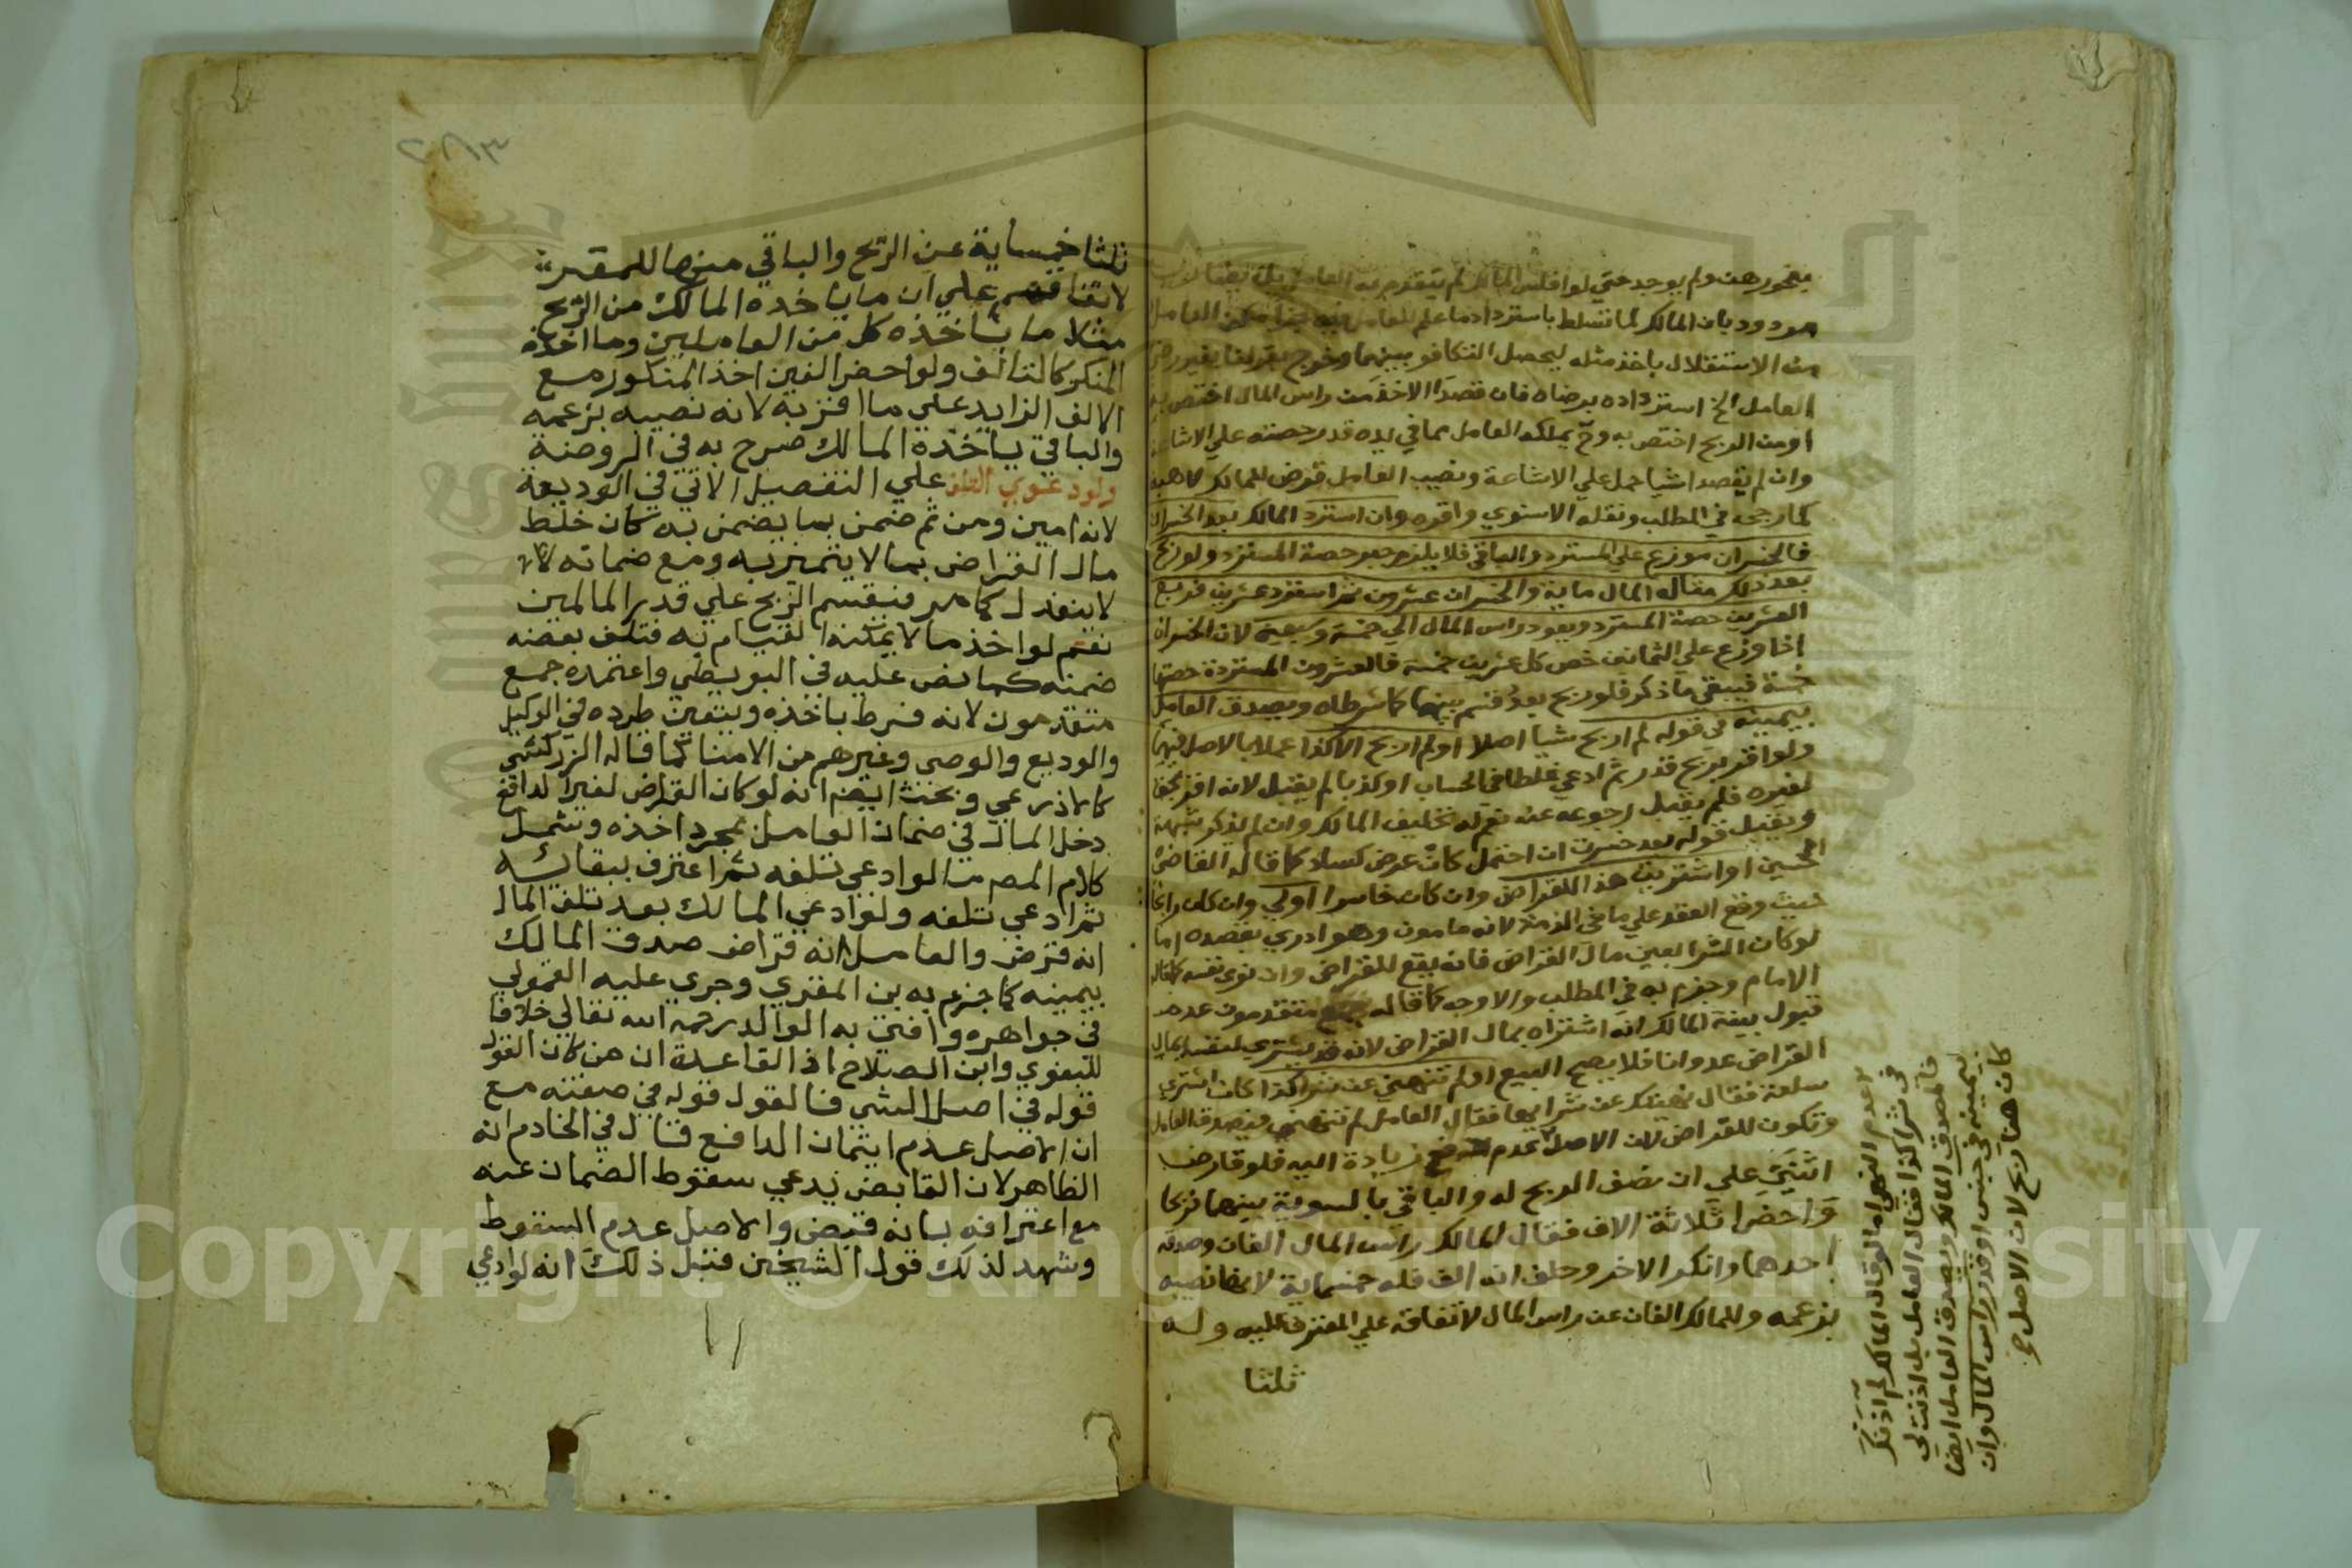 بنحو رهن ولم يوجد حتى لو افلس المالك لم يتقدم به العامل بل
مردود بان المالك لما تسلط باسترداد ما علم للعامل فيه جزا مكن العامل
من الاستقلال باخذ مثله ليحصل التكافو بينهما وخرج بقولنا بغير رضى
العامل الخ استرداده برضاه فان قصدا الاخذ من راس المال اختص به
او من الربح اختص به وح يملك العامل مما في يده قدر حصته علي الاشاعة
وان لم يقصدا شيا حمل علي الاشاعة ونصيب العامل قرض للمالك لا هبة
كما رجحه في المطلب ونقله الاسنوي واقره وان استرد المالك بعد الخسران
فالخسران موزع علي المسترد والباقي فلا يلزم جبر حصة المسترد ولو ربح
بعد ذلك مثاله المال ماية والخسران عشرون ثم استرد عشرين فربع
العشرين حصة المسترد ويعود راس المال الي خمسة وسبعين لان الخسران
اذا وزع علي الثمانين خص كل عشرين خمسة فالعشرون المستردة حصتها
خمسة فيبقي ما ذكر فلو ربح بعد قسم بينهما كما شرطاه ويصدق العامل
بيمينه في قوله لم اربح شيا اصلا او لم اربح الا كذا عملا بالاصل فيهما
ولو اقر بربح قدر ثم ادعي غلطا في الحساب او كذبا لم يقبل لانه اقر بحق
لغيره فلم يقبل رجوعه عنه نعم له تحليف المالك وان لم يذكر شبهة
ويقبل قوله بعد خسرت ان احتمل كان عرض كساد كما قاله القاضي
الحسين او اشتريت هذا للقراض وان كان خاسرا اولي وان كان رابحا
حيث وقع العقد علي ما في الذمة لانه مامون وهو ادري بقصده اما
لو كان الشرا بعين مال القراض فانه يقع للقراض وان نوي نفسه كما قاله
الامام وجزم به في المطلب والاوجه كما قاله جمع متقدمون عدم
قبول بينة المالك انه اشتراه بمال القراض لانه قد يشتري لنفسه بمال
القراض عدوانا فلا يصح البيع او لم تنهني عن شرا كذا كان اشتري
سلعة فقال نهيتك عن شرايها فقال العامل لم تنهني فيصدق العامل
وتكون للقراض لان الاصل عدم دفع زيادة اليه فلو قارض
اثنين علي ان نصف الربح له والباقي بالسوية بينهما فربحا
واحضرا ثلاثة الاف فقال المالك راس المال الفان وصدقه
احدهما وانكر الاخر وحلف انه الف فله خمسماية لانها نصيبه
بزعمه وللمالك الفان عن راس المال لاتفاقه علي المعترف عليه وله
ثلثا
عدم النهي اما لو قال المالك لم اذن لك
في شرا كذا فقال العامل بل اذنت لي
فالمصدق المالك ويصدق العامل ايضا
بيمينه في جنس او قدر راس المال وان
كان هناك ربح لان الاصل
ثلثا خمسماية عن الربح والباقي منها للمقر
لاتفاقهم علي ان ما ياخذه المالك من الربح
مثلا ما ياخذه كل من العاملين وما اخذه
المنكر كالتالف ولو احضر الفين اخذ المنكور مع
الالف الزايد علي ما اقر به لانه نصيبه بزعمه
والباقي ياخذه المالك صرح به في الروضة
ودعوي التلف علي التفصيل الاتي في الوديعة
لانه امين ومن ثم ضمن بما يضمن به كان خلط
مال القراض بما لا يتميز به ومع ضمانه
لا ينعزل كما مر فيقسم الربح علي قدر المالين
نعم لو اخذ ما لا يمكنه القيام به فتلف بعضه
ضمنه كما نص عليه في البويطي واعتمده جمع
متقدمون لانه فرط باخذه ويتعين طرده في الوكيل
والوديع والوصي وغيرهم من الامنا كما قاله الزركشي
كالاذرعي وبحث ايضا انه لو كان القراض لغير الدافع
دخل المال في ضمان العامل بمجرد اخذه وشمل
كلام المص ما لو ادعي تلفه ثم اعترف ببقائه
ثم ادعي تلفه ولو ادعي المالك بعد تلف المال
انه قرض والعامل انه قراض صدق المالك
بيمينه كما جزم به بن المقري وجري عليه القمولي
في جواهره وافتي به الوالد رحمه الله تعالي خلافا
للبغوي وابن الصلاح اذ القاعدة ان من كان القول
قوله في اصل الشي فالقول قوله في صفته مع
ان الاصل عدم ايتمان الدافع قال في الخادم انه
الظاهر لان القابض يدعي سقوط الضمان عنه
مع اعترافه بانه قبض والاصل عدم السقوط
وشهد لذلك قول الشيخين قبيل ذلك انه لو ادعي
Copyright © King Saud University